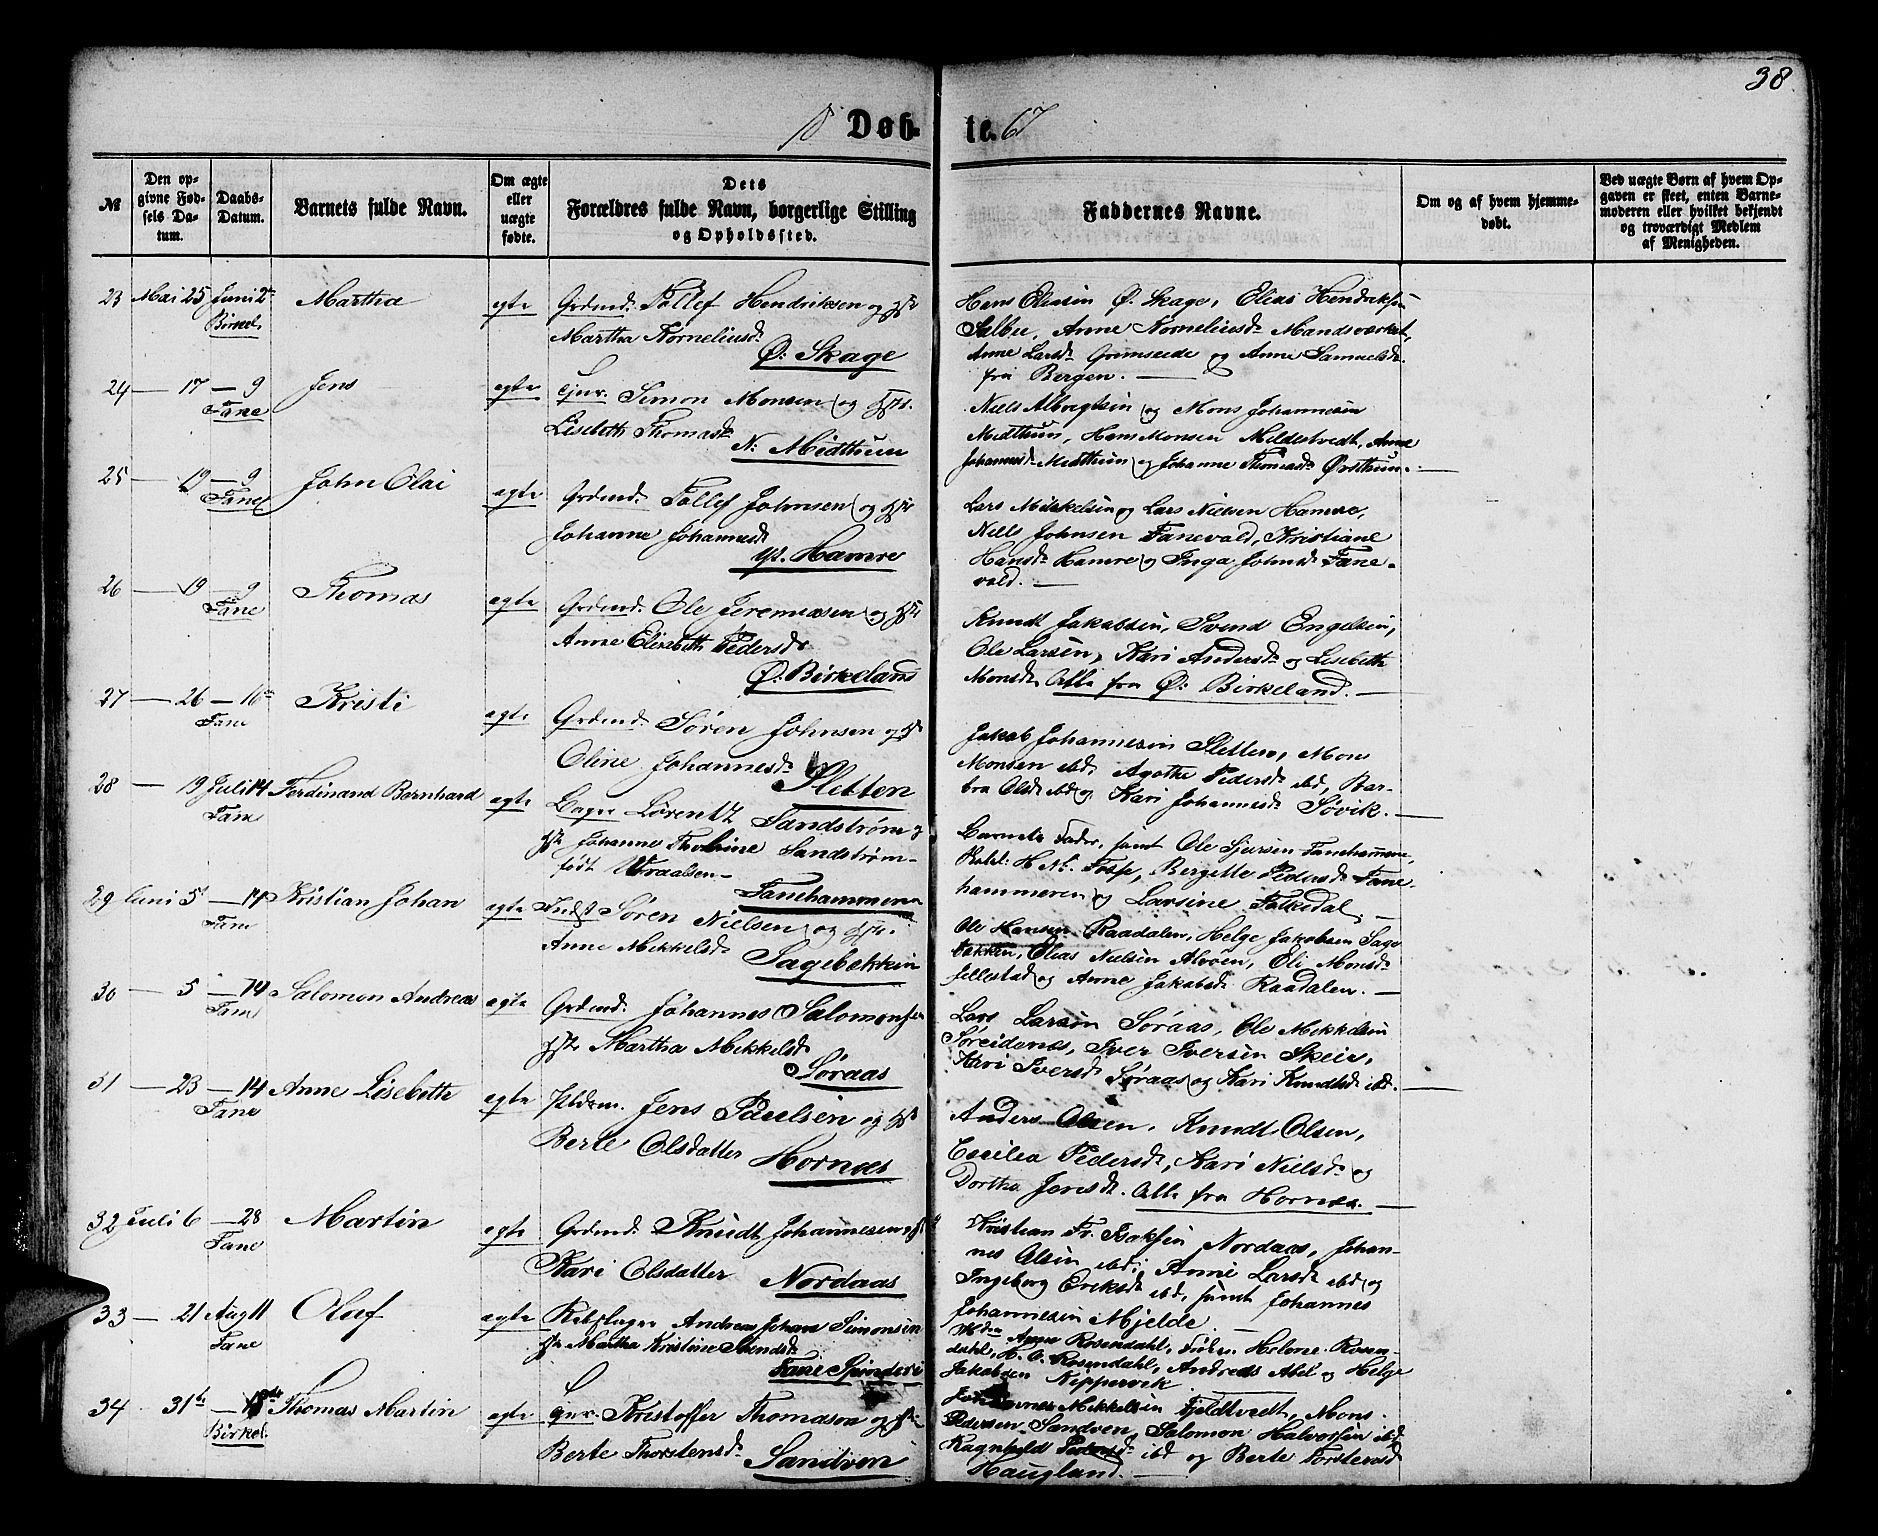 38.
18 Døb-
te. 67
№
Den op-
givne Fød-
sels Da-
tum.
Daabs-
Datum.
Barnets fulde Navn.
Om ægte
eller
uægte
fødte.
Dets
Forældres fulde Navn, borgerlige Stilling
og Opholdssted.
Faddernes Navne.
Om og af hvem hjemme-
døbt.
Ved uægte Børn af hvem Op-
gaven er skeet, enten Barne-
moderen eller hvilket bekjendt
og troværdigt Medlem
af Menigheden.
23 Mai 25 Juni 2 Martha egte Grdmd. Tollef Hendriksen og
Birkel.
Martha Kornelius
Ø. Skage
Hans Eliasen Ø. Skage, Elias Hendriksen
Salbu, Anne Korneliusd. Mandsværket,
Anne Larsd. Grimseide og Anne Samuelsd.
fra Bergen. —
24 — 17 — 9 Jens egte Simon Monsen og
Fane
Lisebeth Thomasd.
N. Midthuun
Niels Albregtsen og Mons Johannesen
Midthuun, Hans Monsen Mildestvedt, Anne
Johannesd. Midthuun og Johanne Thomasd. Øvsthun. —
25 — 19 — 9 John Olai egte Grdmd. Tollef Johnsen og
Fane
Johanne Johannesd.
Hamre
Lars Mikkelsen og Lars Nielsen Hamre,
Niels Johnsen Fanevald, Kristiane
Hansd. Hamre og Inga Johnsd. Fane-
vald. —
26 — 19 — 9 Thomas egte Grdmd. Ole Jeremiasen og
Fane
Anne Elisebeth Pedersd.
Ø. Birkeland
Knudt Jakobsen, Svend Engelsen,
Ole Larsen, Kari Andersd. og Lisebeth
Monsd. Alle fra Ø. Birkeland. —
27 — 26 — 16 Kristi egte Grdmd. Søren Johnsen og
Fane
Oline Johannesd.
Sletten
Jakob Johannesen Sletten, Mons
Monsen ibd, Agathe Pedersd. ibd, Bar-
bra Olsd. ibd og Kari Johannesd. Søvik. —
28 — 19 Juli 14 Ferdinand Bernhard egte Bager Lorentz Sandstrøm og
Fane
Johanne Thobine Sandstrøm
født Wraalsen —
Fanehammeren
Barnets Fader, samt Ole Sjursen Fanehammeren,
H. Fosse, Bergitte Pedersd. Fane-
hammeren og Larsine Falkedal. —
29 Juni 5 — 14 Kristian Johan egte Indst Søren Nielsen og
Fane
Anne Mikkelsd.
Sagebækken
Ole Hansen Raadalen, Helge Jakobsen Sage
bækken, Elias Nielsen Alvøen, Eli Monsd.
Fellestad og Anne Jakobsd. Raadalen. —
30 — 5 — 14 Salomon Andreas egte Grdmd. Johannes Salomonsen
Fane
Martha Mikkelsd.
Søraas
Lars Larsen Søraas, Ole Mikkelsen
Søreidenes, Iver Iversen Skeie,
Kari Iversd. Søraas og Kari Knudsd. ibd. —
31 — 23 — 14 Anne Lisebethe egte Jens Paulsen og
Fane
Berte Olsdatter
Hornæs
Anders Olsen, Knudt Olsen,
Cecilia Pedersd., Kari Nielsd. og
Dorthe Jensd. Alle fra Hornæs. —
32 Juli 6 — 28 Martin egte Grdmd. Knudt Johannesen
Fane
Kari Olsdatter Nordaas
Kristian Fr. Isaksen Nordaas, Johan-
nes Olsen ibd, Anne Larsd. ibd og
Ingeborg Eriksd. ibd, samt Johannes
Johannesen Mjelde. —
33 — 21 Aug 11 Olaf egte Rebslager Andreas Johan Simonsen
Fane
Martha Kristine
Fane Spinderi
Anne Rosendahl, Helene Rosen-
dahl, H. O. Rosendahl, Andreas Abel og Helge
Jakobsen Kippervik
34 31 — 18 Thomas Martin egte Kristoffer Thomasen og
Birkel.
Berte Thorstensd.
Sandven
Johannes Mikkelsen Fjeldtvedt, Mons
Pedersen Sandven, Salomon Halvorsen ibd,
Ragnhild Pedersd. ibd og Berte Torstensd.
Haugland. —